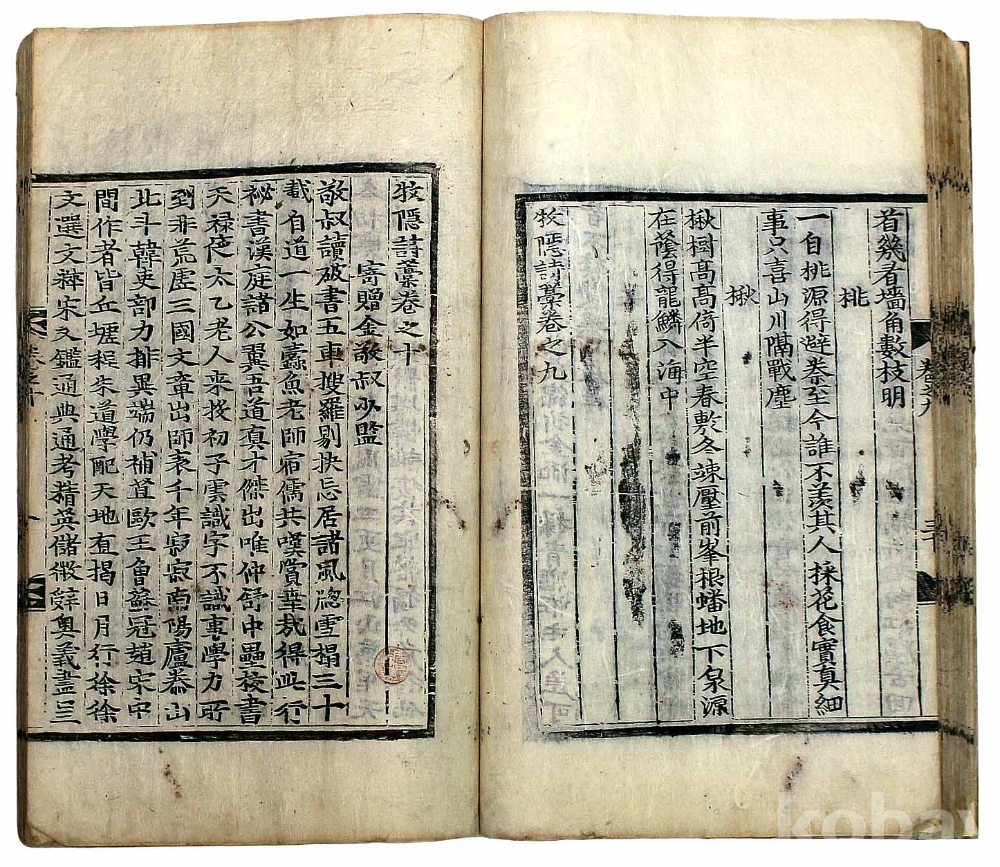 看幾看墻角數枝明
桃
一自桃源得避秦至今誰不羨其人採花食實真細
事只喜山川隔戰塵
楸
楸桐高高倚半空春敷冬竦壓前峯根蟠地下泉源
在蔭得龍鱗入海中
牧隱詩藁卷之九
牧隱詩藁卷之十
寄贈金敬叔少監
敬叔讀破書五車搜羅剔抉忘居諸風牕雪榻三十
載自道一生如蠹魚老師宿儒共嘆賞幸哉得此行
秘書漢庭諸公翼吾道真才傑出唯仲舒中壘校書
天祿閣太乙老人来投初子雲識字不識事學力所
到非荒虛三國文章出師表千年寂寂南陽廬泰山
北斗韓吏部力排異端仍補苴歐王曾蘇冠趙宋中
間作者皆丘墟程朱道學配天地直揭日月行徐徐
文選文粹宋文鑑通典通考精英儲微辭奧義盡三
卷之九
卷之十
kobay